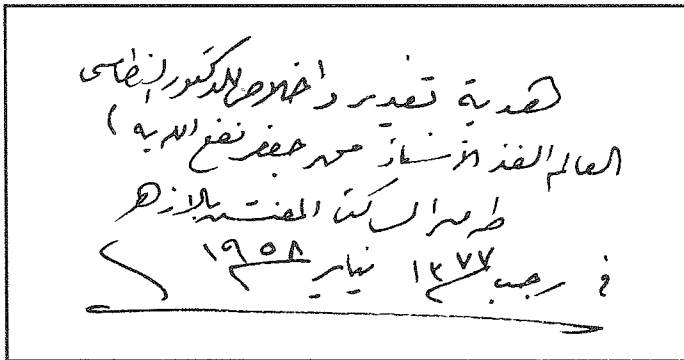 هدية تقدير وإخلاص للدكتور النطاسى
العالم الفذ الأستاذ محمد جعفر نفع الله به
طه محمد الساكت المفتش بالأزهر
فى رجب ١٣٧٧ يناير ١٩٥٨